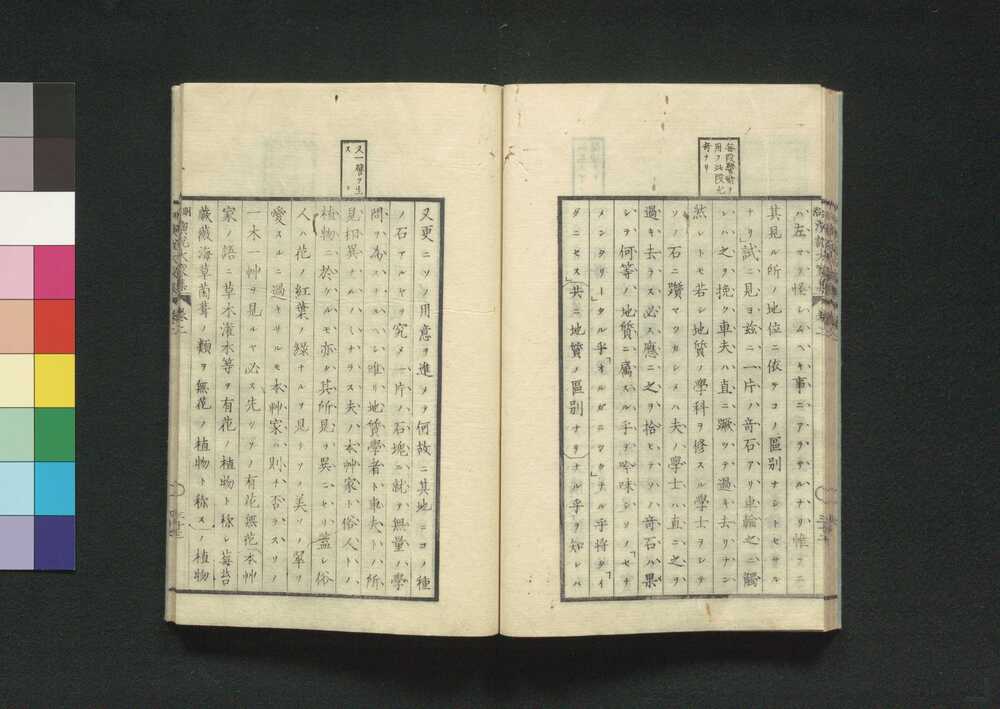 ハ左マテ怪シムヘキ事ニアラサルナリ惟フニ
其見ル所ノ地位ニ依テコノ區別ナシトセサル
ナリ試ニ見ヨ茲ニ一片ノ奇石アリ車輪之ニ觸
レハ之ヲ挽ク車夫ハ直ニ蹶ツテ過キ去リナン
然レトモ若シ地質ノ學科ヲ修スル學士ヲシテ
ソノ石ニ躓マツカシメハ夫ノ學士ハ直ニ之ヲ
過キ去ラス必ス應ニ之ヲ拾ヒテソノ奇石ハ果
シテ何等ノ地質ニ屬スル乎ヲ吟味シソノ「セヂ
メンタリー」タル乎「オルガニツク」ナル乎將「タイ
ダニセス」共ニ地質ノ區別ナリナル乎ヲ知レバ
毎段譬喩ヲ
用フ此段尤
奇ナリ
又更ニソノ用意ヲ進メテ何故ニ其地ニコノ種
ノ石アルヤヲ究メ一片ノ石塊ニ就テ無量ノ學
問ヲ為スナルヘシ唯リ地質學者ト車夫トノ所
見相異ナルノミナラス夫ノ本艸家ト俗人トノ
植物ニ於ケルモ亦タ其所見ヲ異ニセリ蓋シ俗
人ハ花ノ紅葉ノ綠ナルヲ見テソノ美ソノ翠ヲ
愛スルニ過キサルモ本艸家ハ則チ否ラスソノ
一木一艸ヲ見ルヤ必ス先ツソノ有花無花本艸
家ノ語ニ草木灌木等ヲ有花ノ植物ト称シ苺苔
蕨薇海草菌茸ノ類ヲ無花ノ植物ト称スノ植物
又一譬ヲ生
ス